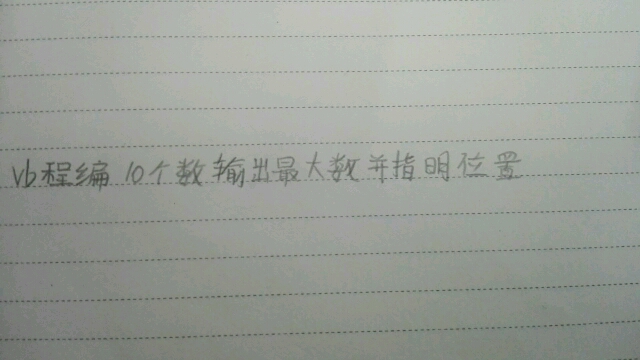 vb程编 10个数输出最大数并指明位置